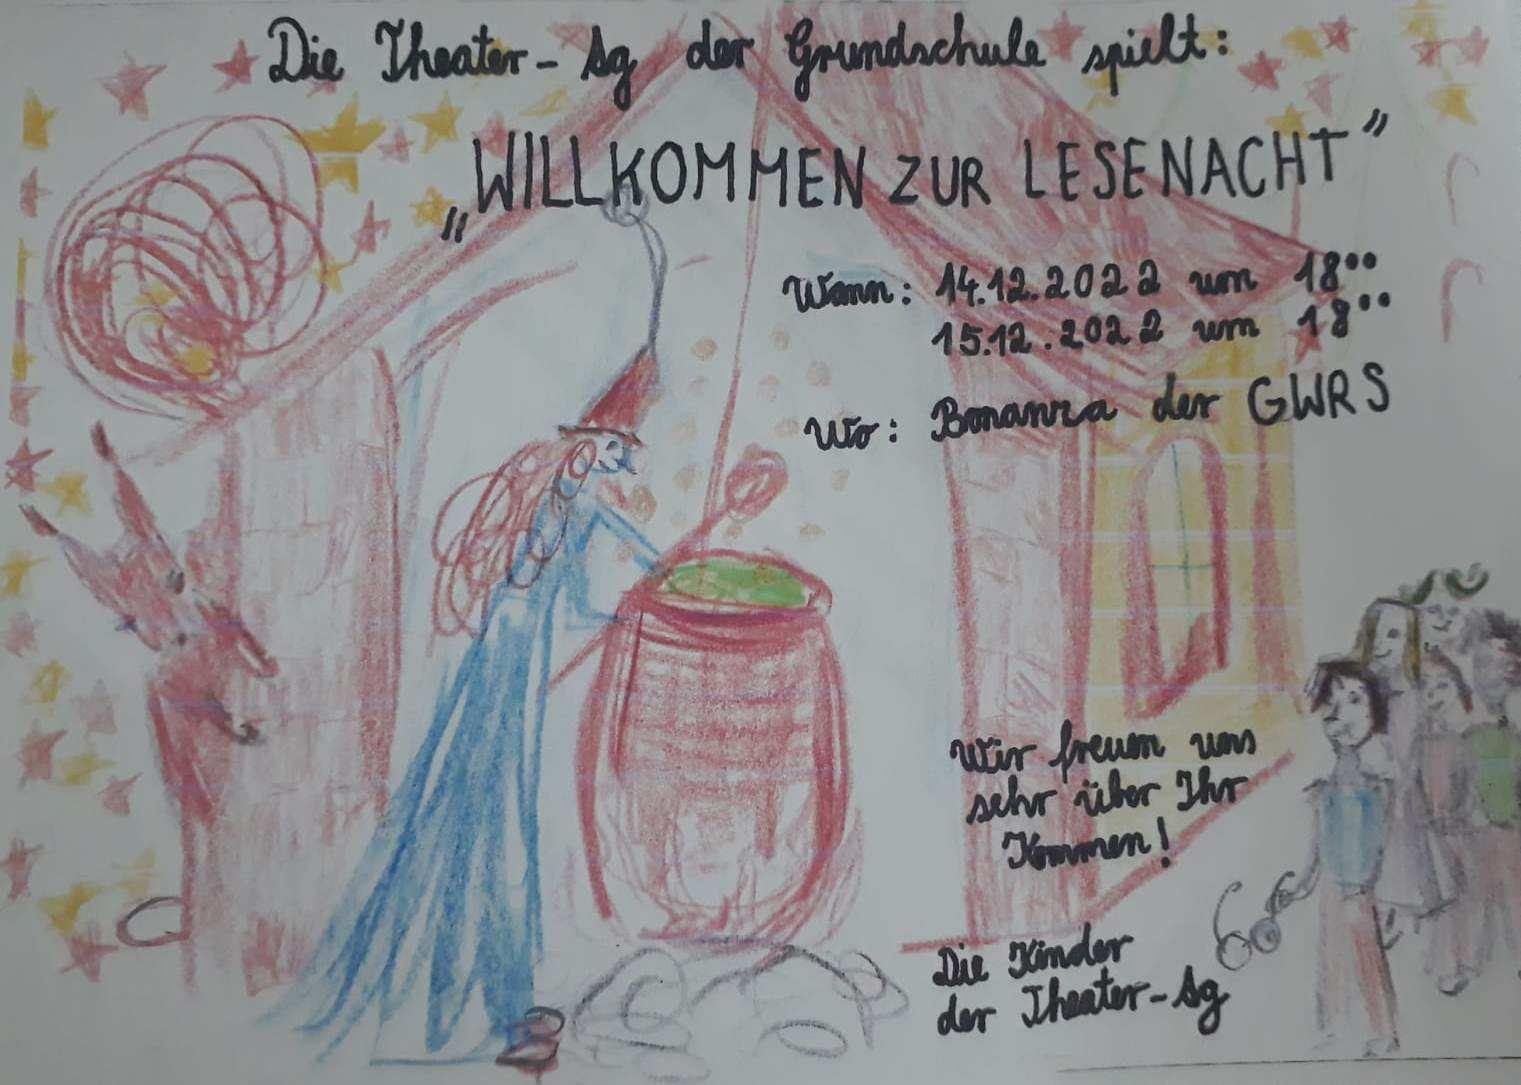 Die Theater-Ag der Grundschule spielt:
„WILLKOMMEN ZUR LESENACHT"
Wann: 14.12.2022 um 18°°
15.12.2022 um 18°°
Wo: Bonanza der GWRS
Wir freuen uns
sehr über Ihr
Kommen!
Die Kinder
der Theater-Ag